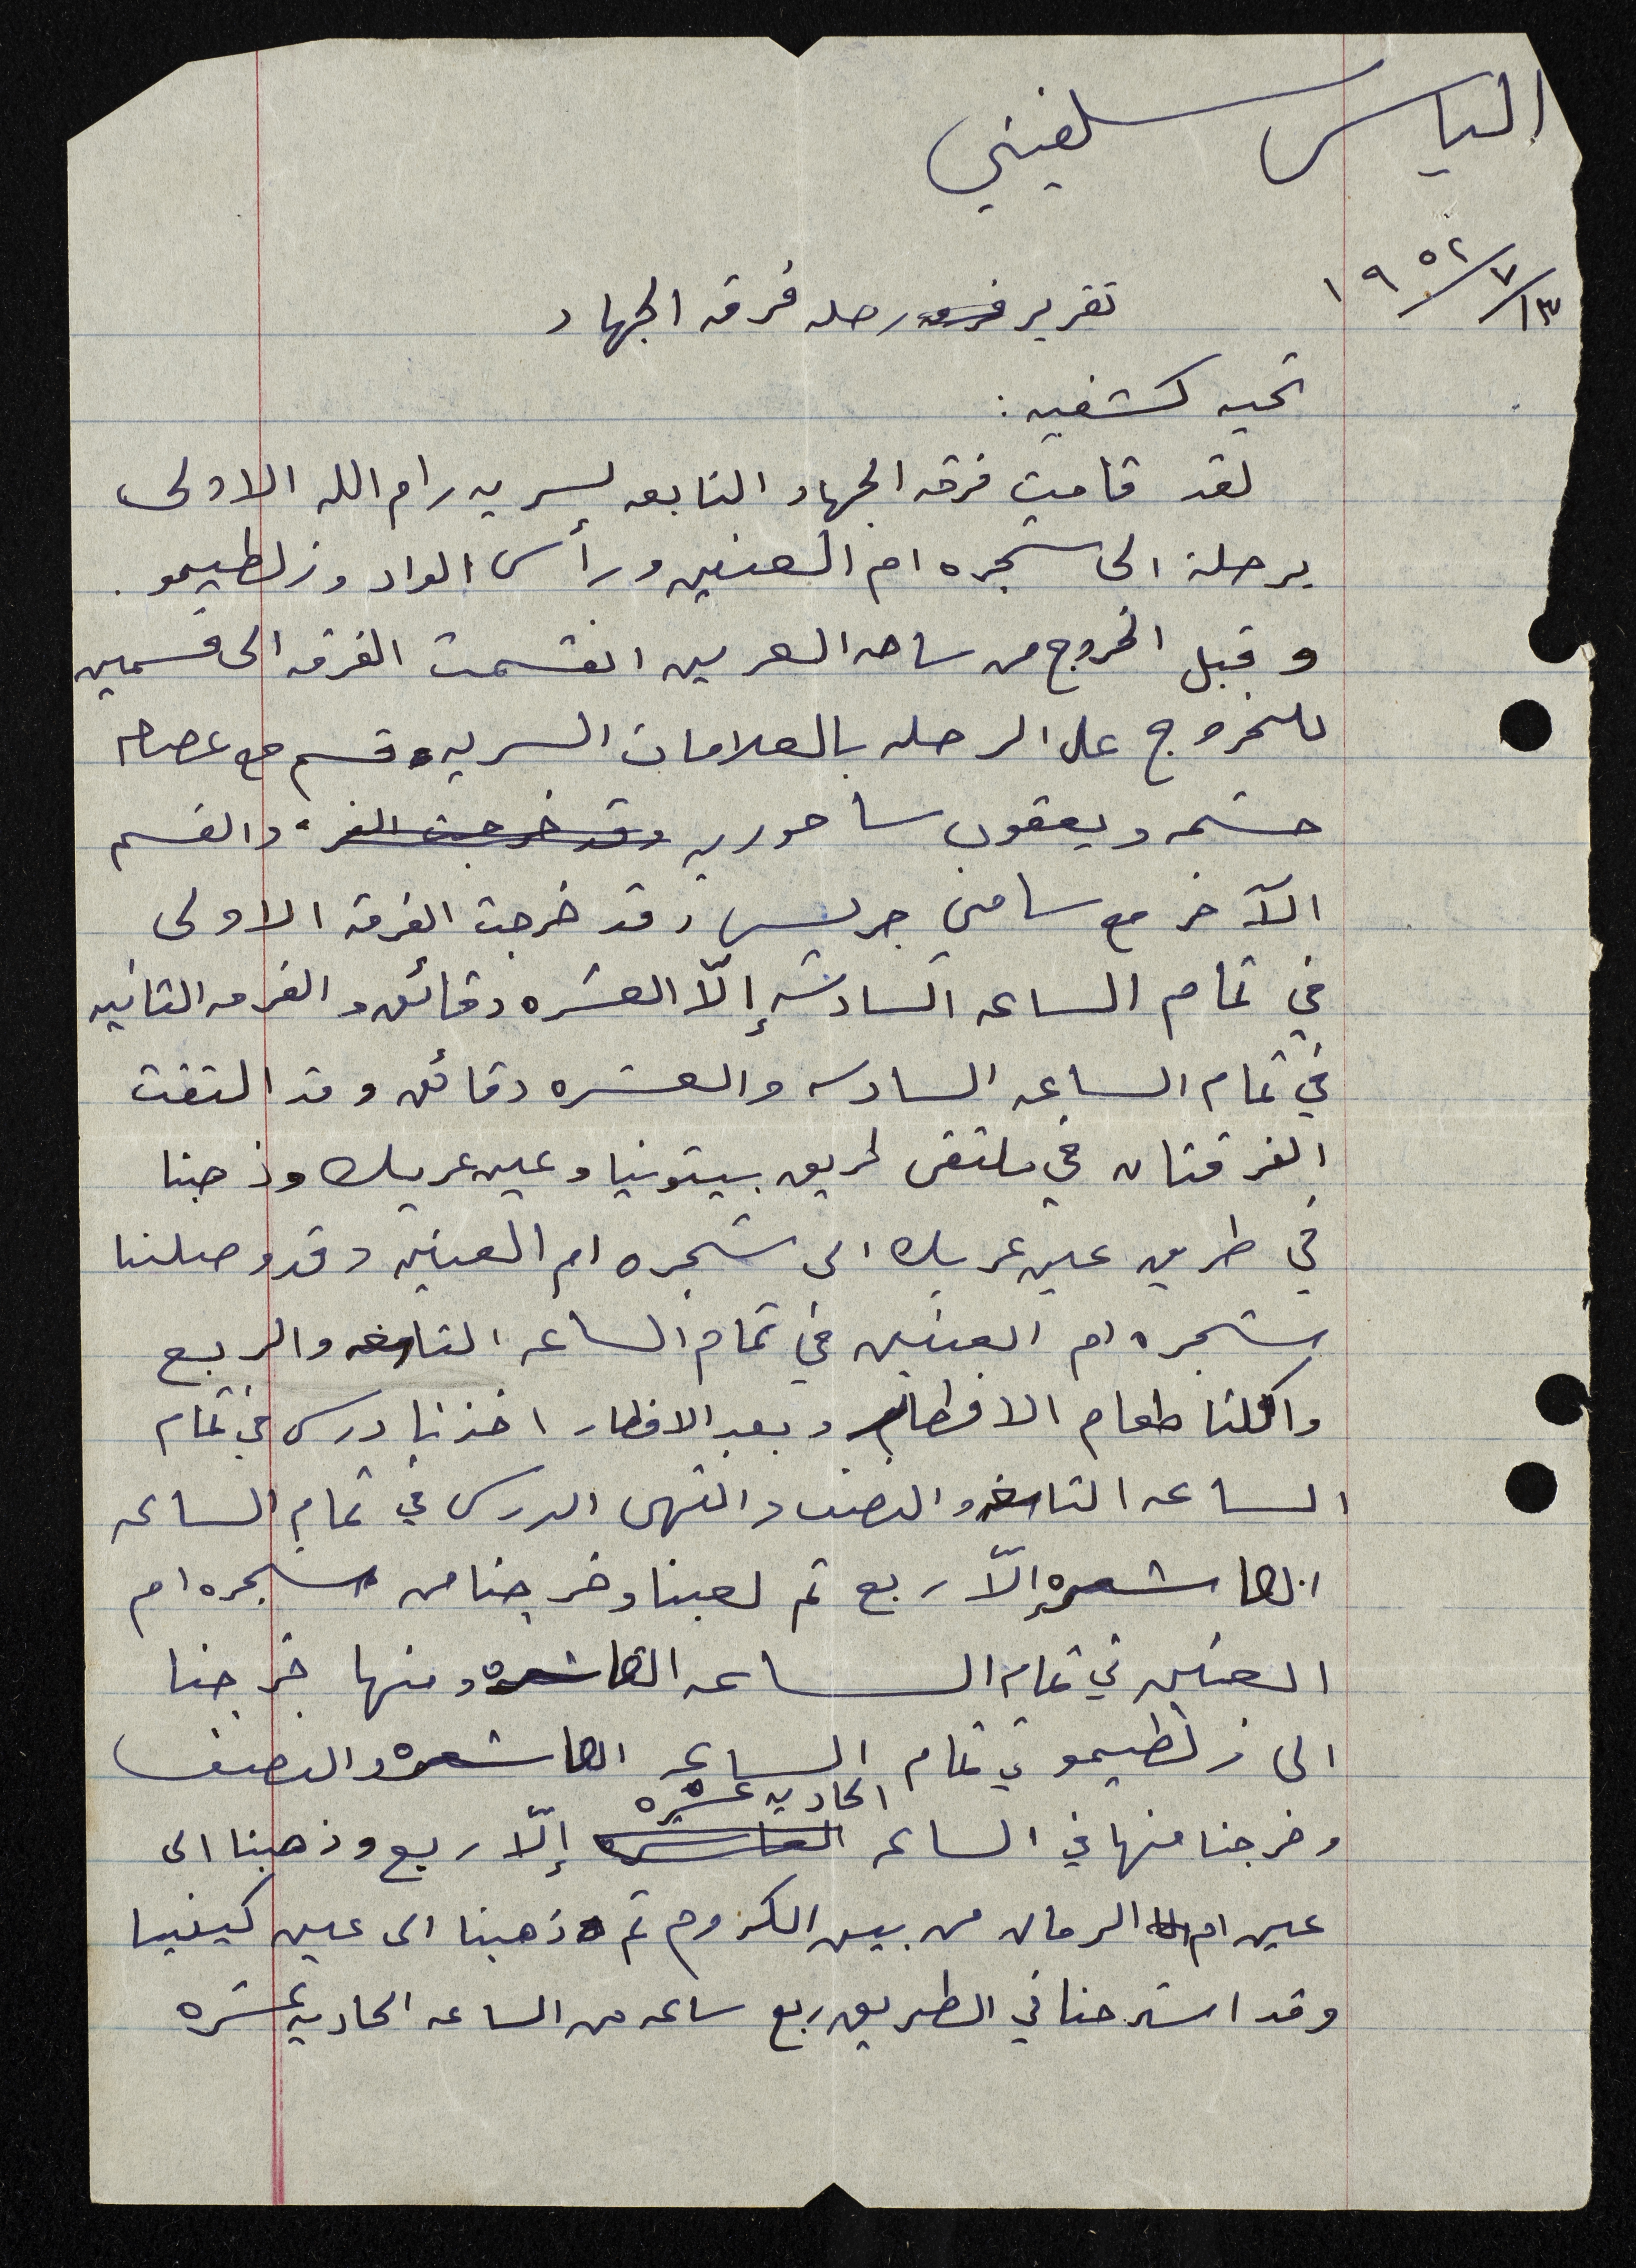 الياس سلفيتي
١٣/٧/١٩٥٢
تقرير رحله فرقه الجهاد
تحيه كشفيه :
لقد قامت فرقه الجهاد التابعه لسريه رام الله الاولى
برحلة الى شجره ام العنين ورأس الواد وزلطيمو .
وقبل الخروج من ساحه العرين انقسمت الفرقه الى قسمين
للخروج على الرحله بالعلامات السريه قسم مع عصام
حشمه ويعقوب ساحوريه وقد خرجت الفر والقسم
الآخر مع سامي جريس وقد خرجت الفرقه الاولى
في تمام الساعه السادسه إلّا العشره دقائق والفرقه الثانيه
في تمام الساعه السادسه والعشره دقائق وقد التقت
الفرقتان في ملتقى طريق بيتونيا وعين عريك وذهبنا
في طريق عين عريك الى شجره ام العنين وقد وصلنا
شجره ام العنين في تمام الساعه التاسعه والربع
واكلنا طعام الافطار وبعد الافطار اخذنا درس في تمام
الساعه التاسعه والنصف وانتهى الدرس في تمام الساعه
العاشره إلّا ربع ثم لعبنا وخرجنا من شجره ام
العنين في تمام الساعه العاشره ومنها خرجنا
الى زلطيمو في تمام الساعه العاشره والنصف
وخرجنا منها في الساعه العاشره الحاديه عشره إلّا ربع وذهبنا الى
عين ام الرمان من بين الكروم ثم ذهبنا الى عين كينيا
وقد استرحنا في الطريق ربع ساعه من الساعه الحاديه عشره